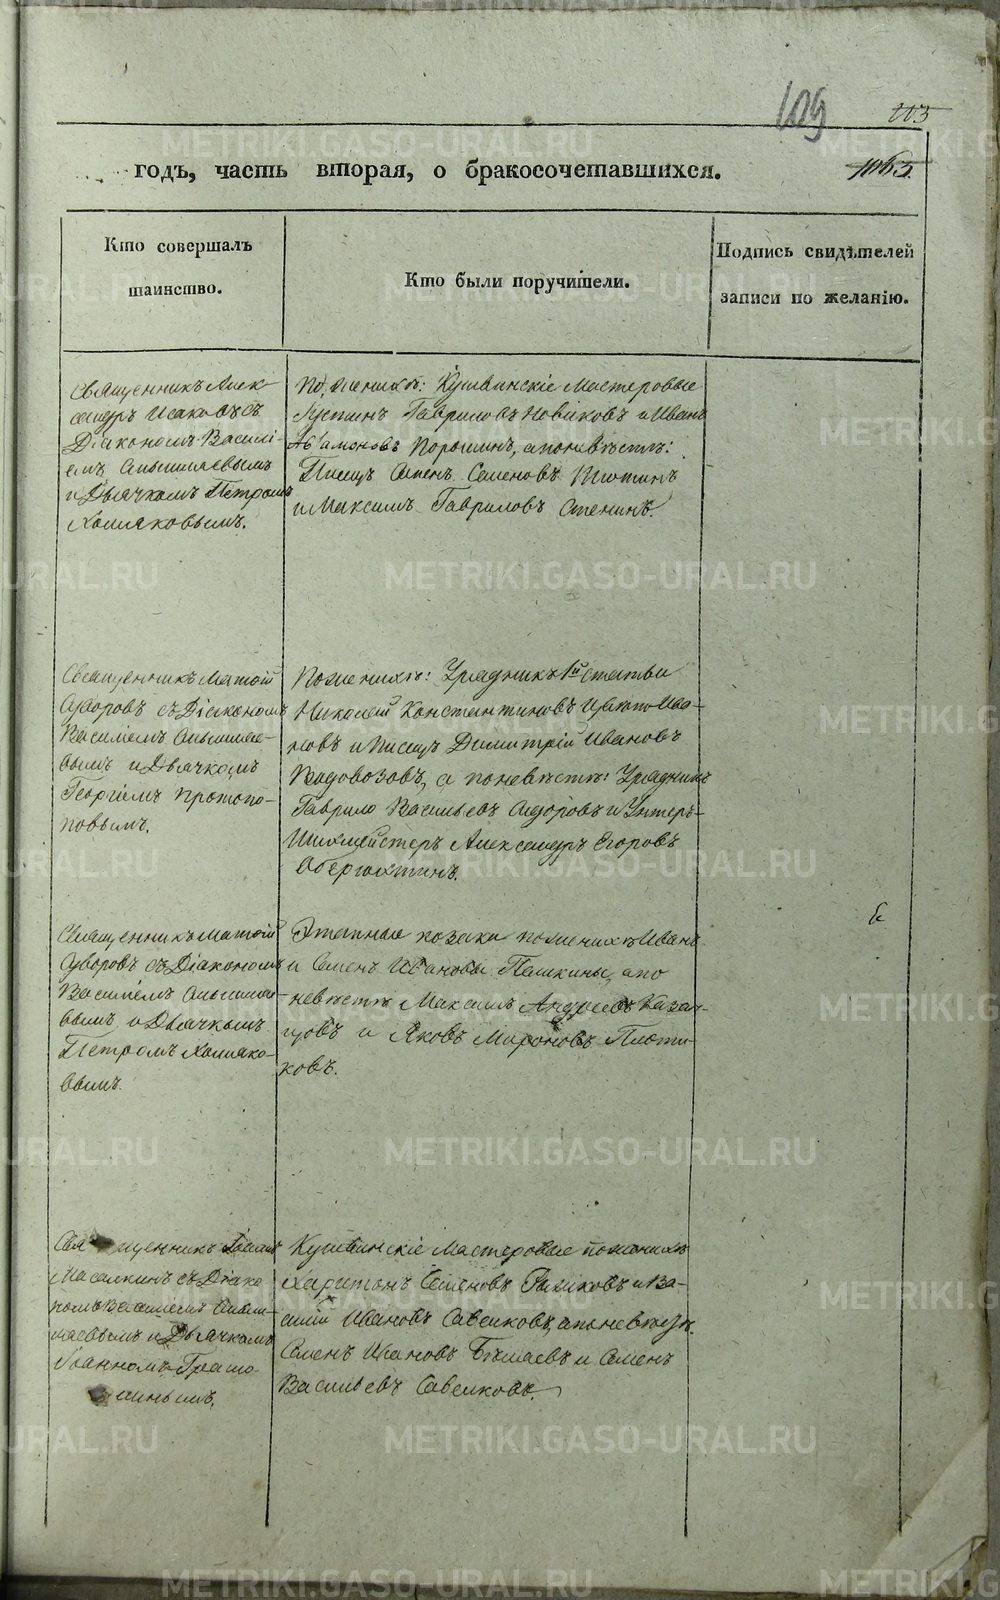 109
203
годъ, часть вторая, о бракосочетавшихся.
1065
Кто совершалъ
таинство.
Кто были поручители.
Подпись свидѣтелей
записи по желанію.
Священникъ Алек-
сандръ Исаковъ съ
Діакономъ Василі-
емъ
и Дьячкомъ Петромъ
Хомяковымъ.
По женихѣ: Кушвинскіе Мастеровые
Гавриловъ Новиковъ и Иванъ
Порошинъ, а по невѣстѣ:
Писецъ Семенъ Семеновъ
и Максимъ Гавриловъ Стенинъ.
Священникъ Матѳій
Суворовъ съ Діакономъ
Василіемъ
вымъ и Дьячкомъ
Георгіемъ Протопо-
повымъ.
По женихѣ: Урядникъ 1й статьи
Николай Константиновъ Ива-
новъ и Писецъ Димитрій Ивановъ
Водовозовъ, а по невѣстѣ: Урядникъ
Гаврило Васильевъ Сидоровъ и Унтеръ-
Шихмейстеръ Александръ Егоровъ
Обергюхтинъ.
Священникъ Матѳій
Суворовъ съ Діакономъ
Василіемъ
вымъ и Дьячкомъ
Петромъ Хомяко-
вымъ.
Этапные козаки по женихѣ Иванъ
и Семенъ Ивановы Пашкины, а по
невѣстѣ Максимъ Андреевъ Казан-
цовъ и Яковъ Мироновъ Плотни-
ковъ.
Священникъ
съ Діако-
номъ Василіемъ
и Дьячкомъ
Іоанномъ
Кушвинскіе Мастеровые по женихѣ
Харитонъ Семеновъ и Ва-
силій Ивановъ Савенковъ, а по невѣстѣ.
Семенъ Ивановъ и Семенъ
Васильевъ Савенковъ.
METRIKI.GASO-URAL.RU